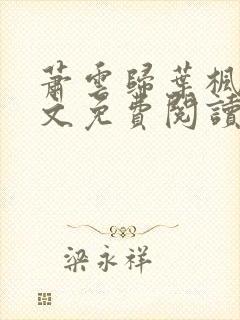 蕭雲歸葉楓
文免費閱讀
梁永祥